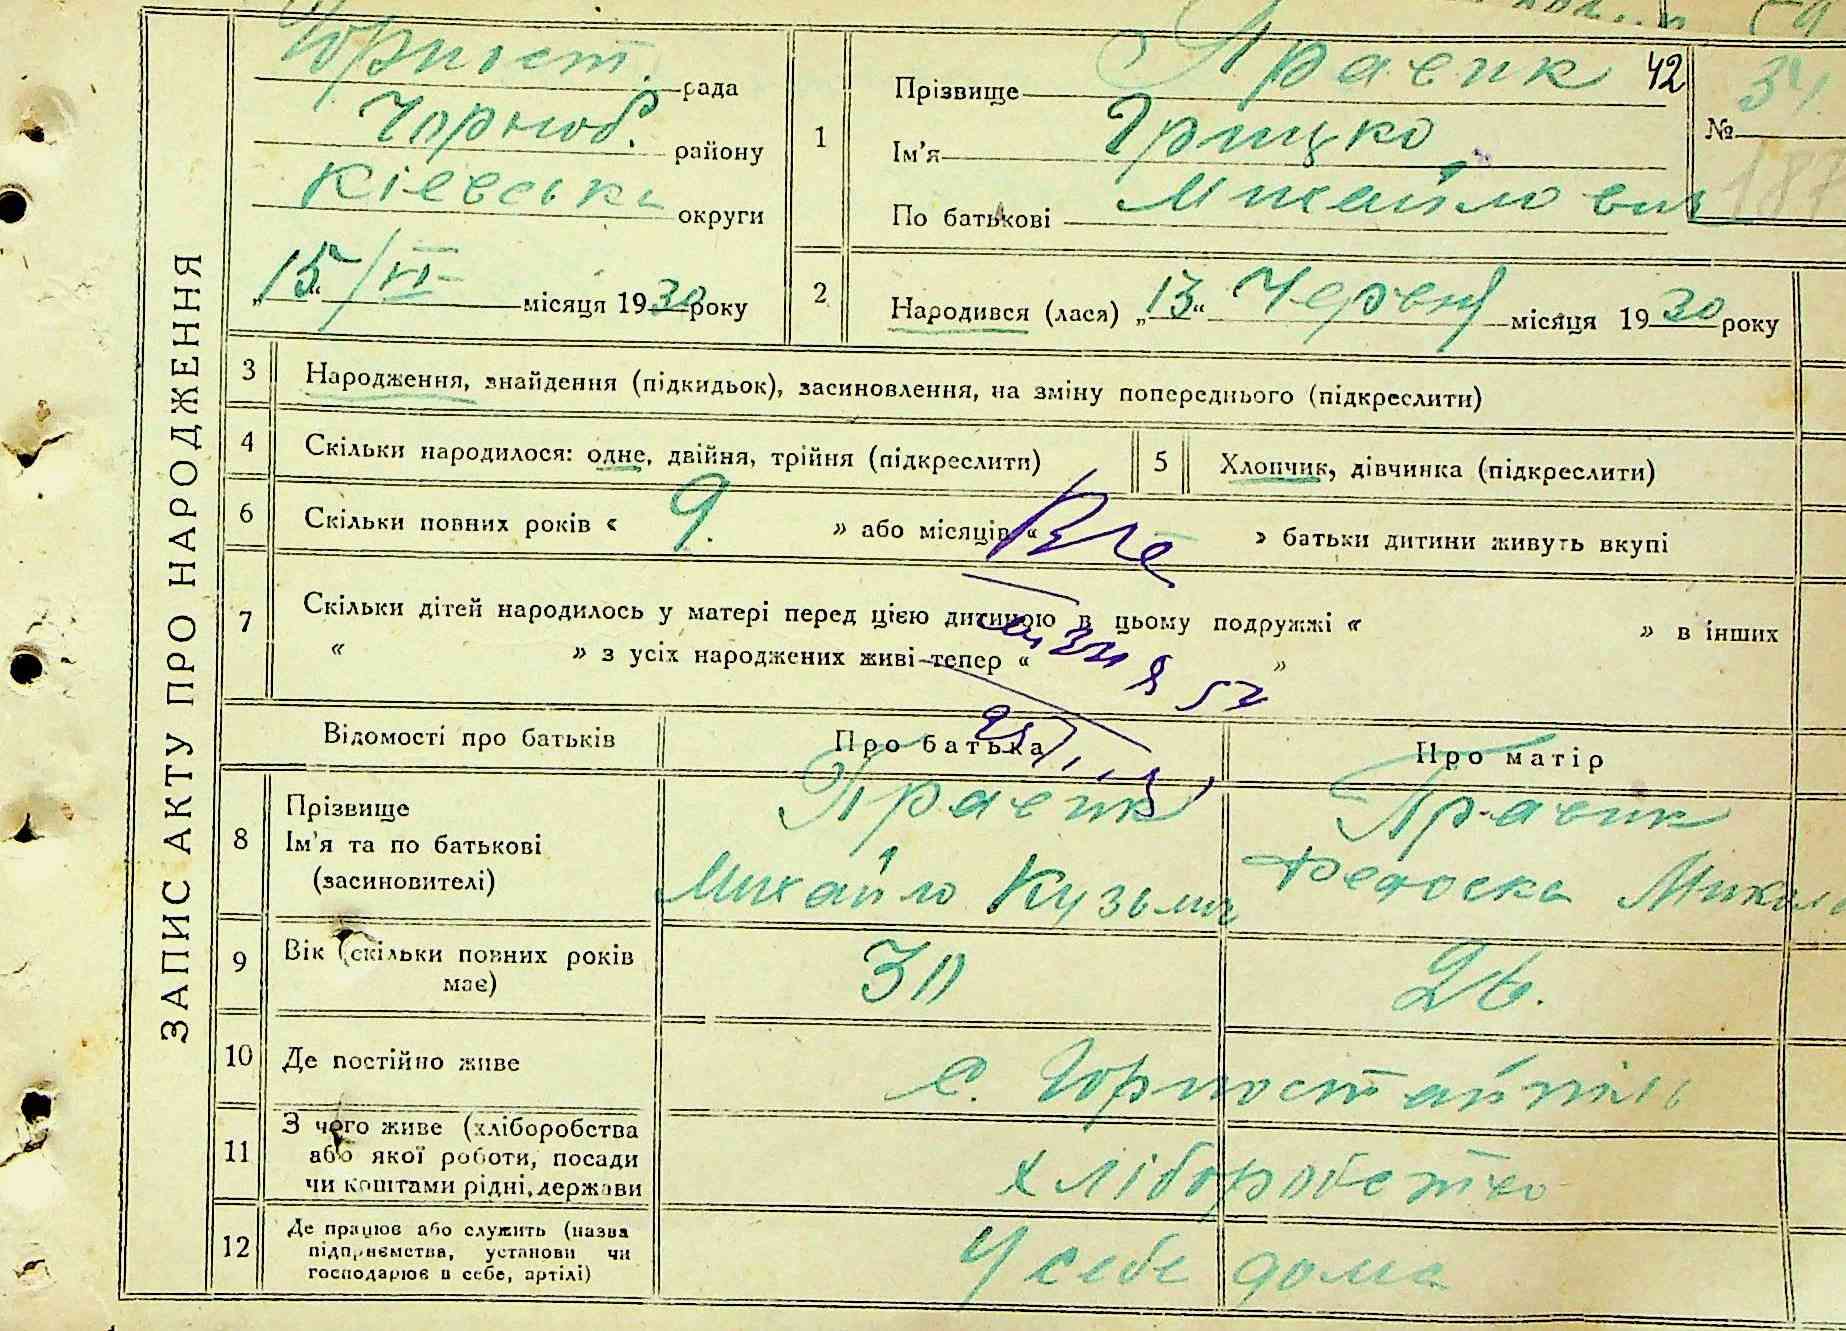 ЗАПИС АКТУ ПРО НАРОДЖЕННЯ
Горност. рада
Чорноб. району
Кіевська округи
„15“ / VI - місяця 1930 року
1 Прізвище Правик 42
Ім'я Грицко
По батькові Михайлович
№ 34
187
2 Народився (лася) „13“ Червня місяця 1930 року
3 Народження, знайдення (підкидьок), засиновлення, на зміну попереднього (підкреслити)
4 Скільки народилося: одне, двійня, трійня (підкреслити)
5 Хлопчик, дівчинка (підкреслити)
6 Скільки повних років « 9. » або місяців « – » батьки дитини живуть вкупі
7 Скільки дітей народилось у матері перед цією дитиною в цьому подружжі « » в інших
« » з усіх народжених живі тепер « »
Відомості про батьків Про батька Про матір
8 Прізвище Правик Правик
Ім'я та по батькові
(засиновителі) Михайло Кузьмич Федоска
9 Вік (скільки повних років має) 30 26.
10 Де постійно живе с. Горностайпіль
11 З чего живе (хліборобства
або якої роботи, посади
чи коштами рідні, держави
хліборобство
12 Де працює або служить (назва
підприємства, установи чи
господарює в себе, артілі)
У себе дома